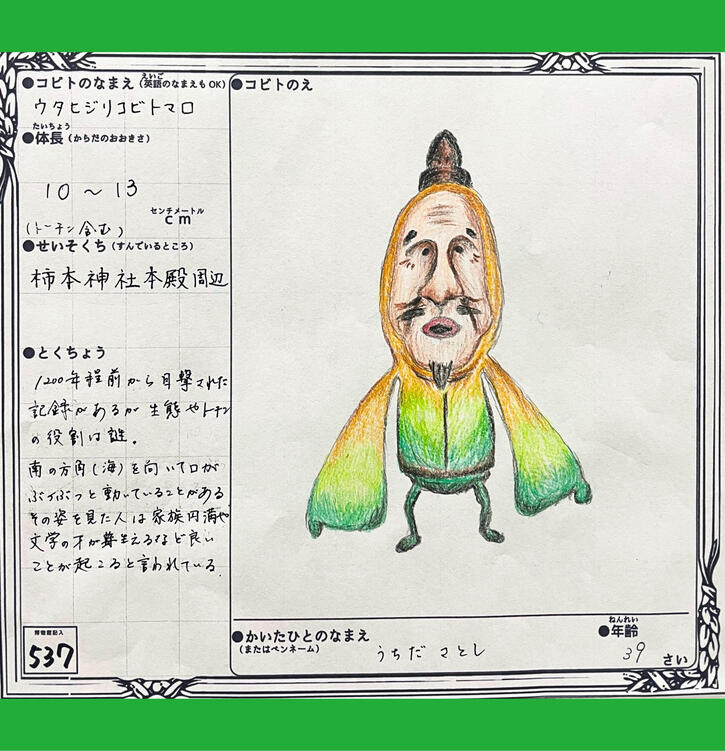 ●コビトのなまえ(英語のなまえもOK)
えいご
ウタヒジリコビトマロ
たいちょう
●体長(からだのおおきさ)
10～13
センチメートル
cm
(トーチン含む)
●せいそくち(すんでいるところ)
柿本神社本殿周辺
●とくちょう
1200年程前から目撃された
記録があるが生態やトーチン
の役割は謎。
南の方角(海)を向いて口が
ぶつぶつと動いていることがある
その姿を見た人は家族円満や
文学の才が芽生えるなど良い
ことが起こると言われている。
博物館記入
537
●コビトのえ
●かいたひとのなまえ
(またはペンネーム)
うちださとし
ねんれい
●年齢
39 さい